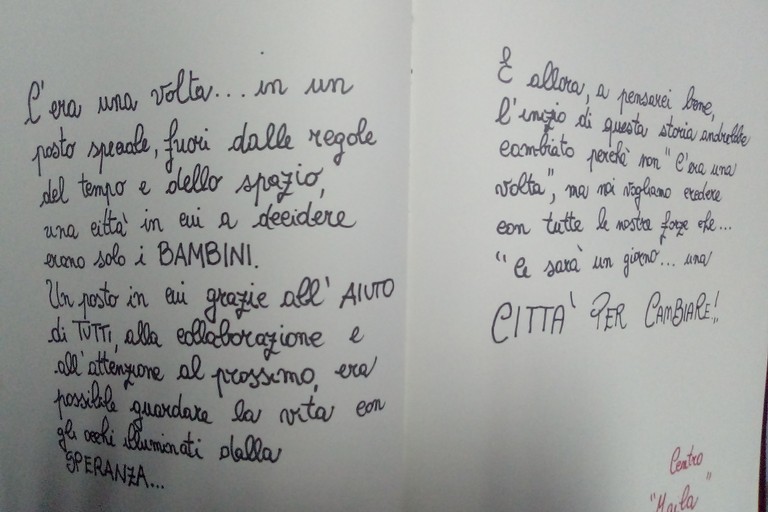 C'era una volta... in un
posto speciale, fuori dalle regole
del tempo e dello spazio,
una città in cui a decidere
erano solo i BAMBINI.
Un posto in cui grazie all'AIUTO
di TUTTI, alla collaborazione e
all'attenzione al prossimo, era
possibile guardare la vita con
gli occhi illuminati dalla
SPERANZA...
E allora, a pensarci bene,
l'inizio di questa storia andrebbe
cambiato perchè non "C'era una
volta", ma noi vogliamo credere
con tutte le nostre forze che...
"Ce sarà un giorno... una
CITTÀ PER CAMBIARE!
Centro